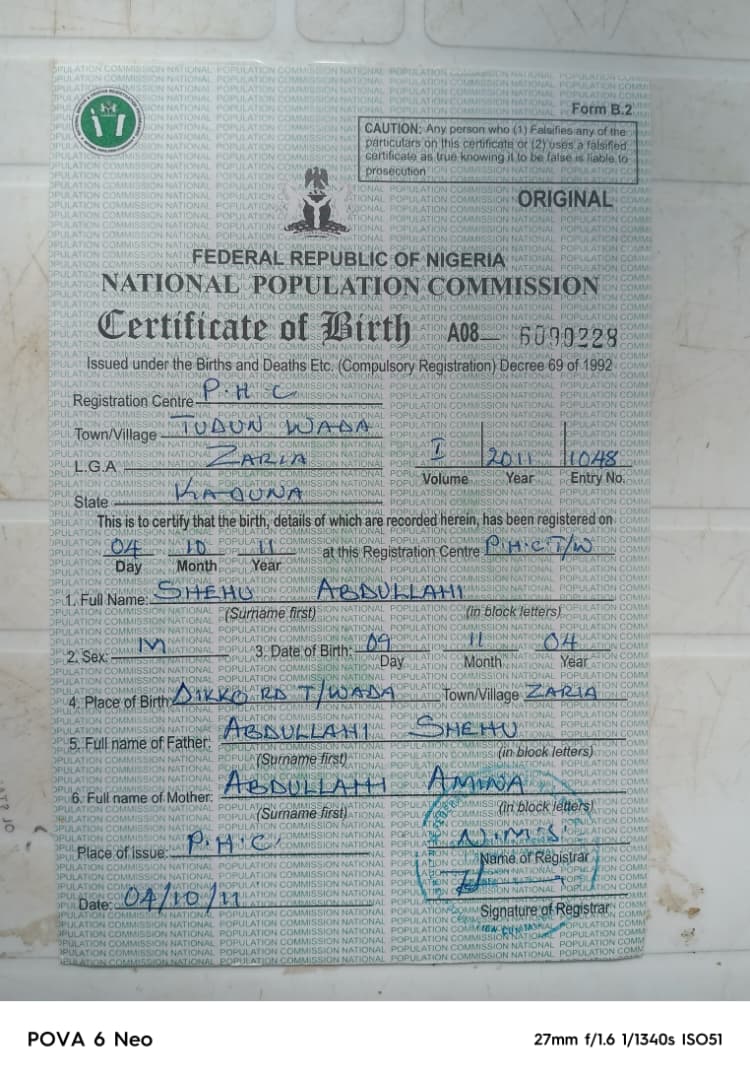 Form B.2
CAUTION: Any person who (1) Falsifies any of the
particulars on this certificate or (2) uses a falsified
certificate as true knowing it to be false is liable to
prosecution
ORIGINAL
FEDERAL REPUBLIC OF NIGERIA
NATIONAL POPULATION COMMISSION
Certificate of Birth A08 6090228
Issued under the Births and Deaths Etc. (Compulsory Registration) Decree 69 of 1992
Registration Centre P.H C
Town/Village TUDUN WADA
L.G.A ZARIA
I 2011 1048
Volume Year Entry No.
State KADUNA
This is to certify that the birth, details of which are recorded herein, has been registered on
04 10 11 at this Registration Centre P.H.C T/W
Day Month Year
1. Full Name: SHEHU ABDULLAHI
(Surname first) (in block letters)
2. Sex: M 3. Date of Birth: 09 11 04
Day Month Year
4. Place of Birth DIKKO RD T/WADA Town/Village ZARIA
5. Full name of Father: ABDULLAHI SHEHU
(Surname first) (in block letters)
6. Full name of Mother: ABDULLAHI AMINA
(Surname first) (in block letters)
Place of issue: P.H.C
N.M.S
Name of Registrar
Date: 04/10/11
Signature of Registrar
POVA 6 Neo 27mm f/1.6 1/1340s ISO51